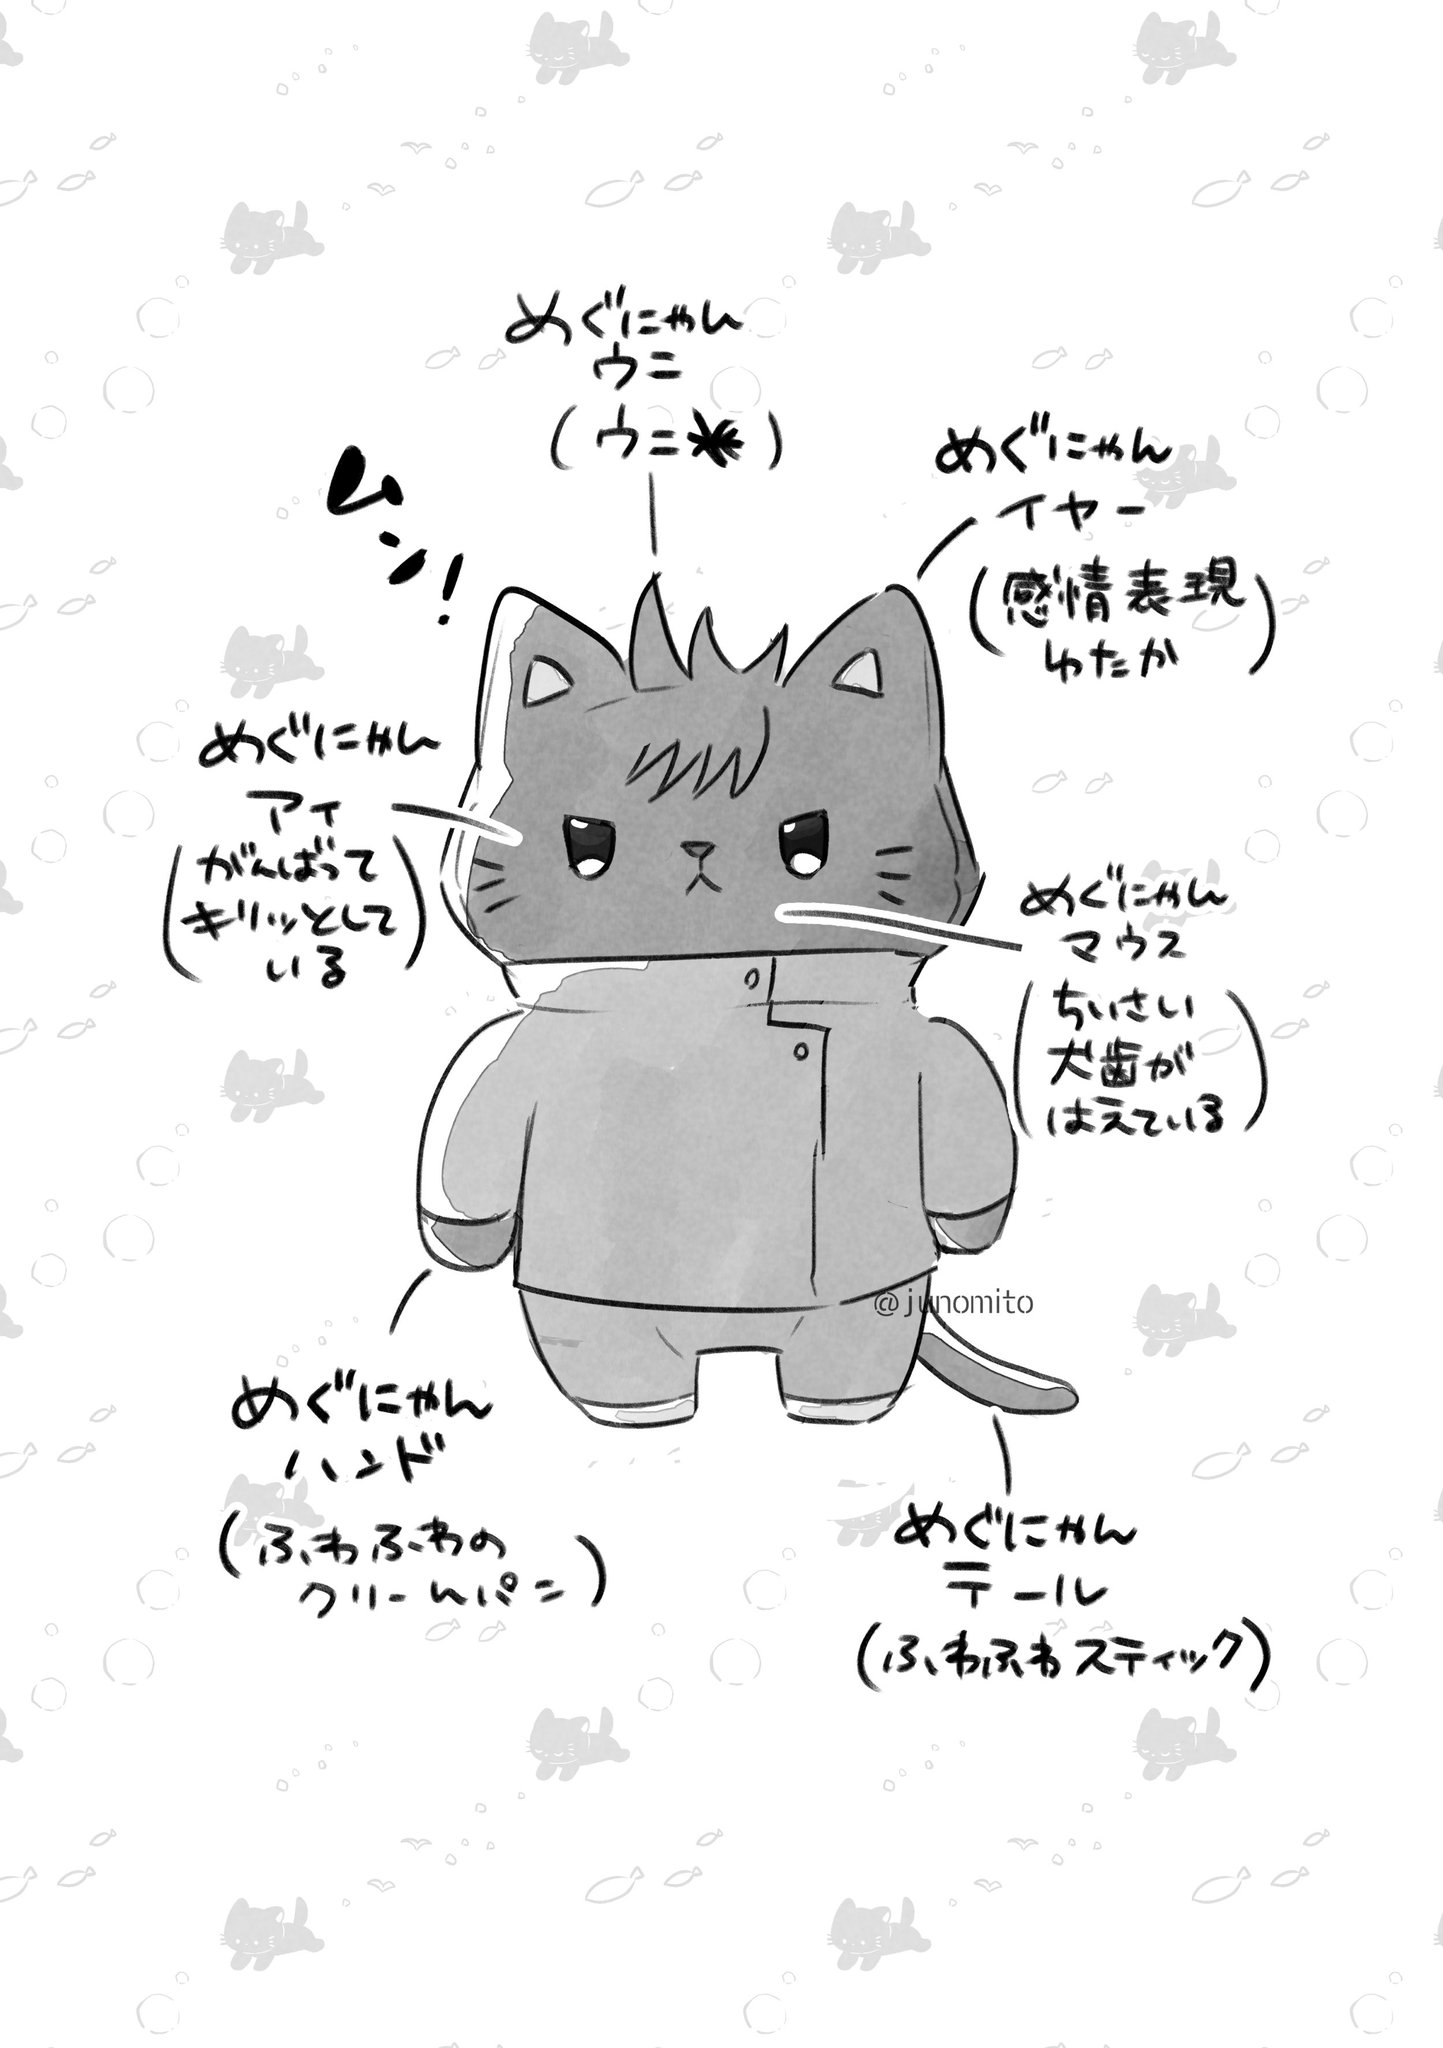 めぐにゃん
ウニ
(ウニ)
ムン!
めぐにゃん
イヤー
(感情表現
ゆたか)
めぐにゃん
アイ
(がんばって
ギリッとして
いる)
めぐにゃん
マウス
(ちいさい
犬歯が
はえている)
@junomito
めぐにゃん
ハンド
(ふわふわの
クリームパン)
めぐにゃん
テール
(ふわふわスティック)